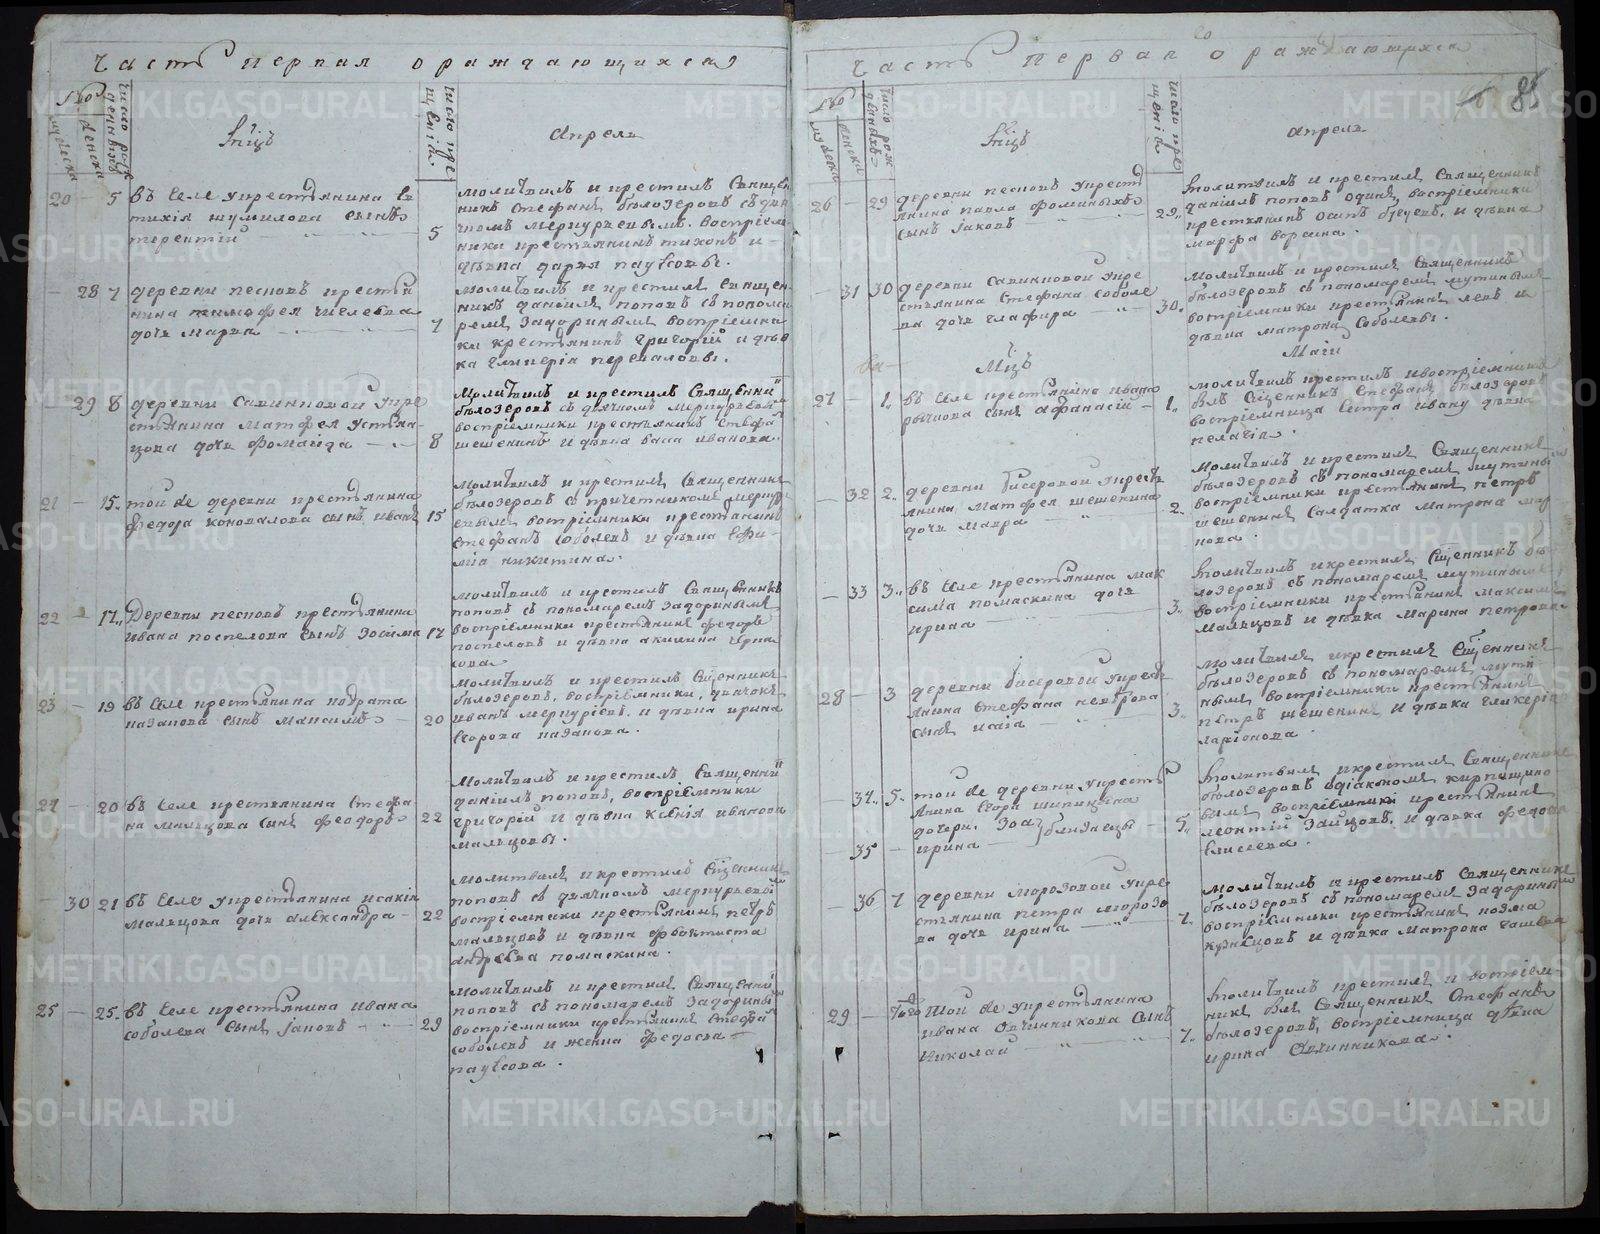 Часть первая о раждающихся
Мцъ
Апрель
20 5 Въ селе у крестьянина Ев
тихія Шумилова сынъ
Терентій
5
Молитвилъ и крестилъ священ
никъ Стефанъ Бѣлозеровъ съ дья
чкомъ Меркурьевымъ. воспріем
ники крестьянинъ Тихонъ и
дѣвка Дарья
28 7 деревни Песковъ крестья
нина Тимофея
дочь Марѳа
7
Молитвилъ и крестилъ священ
никъ Даніилъ Поповъ съ понома
ремъ Задоринымъ воспріемни
ки крестьянинъ Григорій и дѣв
ка Гликерія Перваловы.
29 8 деревни Савинковой у кре
стьянина Матфея Устья
нцова дочь Фомаида
8
Молитвилъ и крестилъ священни
Бѣлозеровъ съ дьячкомъ Меркурьевы
воспріемники крестьянинъ Стефа
Шешенинъ и дѣвка Васса Иванова.
21 15 той же деревни крестьянина
Федора Коновалова сынъ Иванъ
15
Молитвилъ и крестилъ священникъ
Бѣлозеровъ съ причетникомъ Меркурь
евымъ, воспріемники крестьянинъ
Стефанъ Соболевъ и дѣвка Ефи
мія Никитина.
22 17 Деревни Песковъ крестьянина
Ивана Поспелова сынъ Зосима
17
Молитвилъ и крестилъ священникъ
Поповъ съ пономаремъ Задоринымъ
воспріемники крестьянинъ Федоръ
Поспеловъ и дѣвка Акилина
23 19 въ селе крестьянина Кодрата
Казакова сынъ Максимъ
20
Молитвилъ и крестилъ сщенникъ
Бѣлозеровъ, воспріемники, дьячокъ
Иванъ Меркуріевъ. и дѣвка Ирина
Егорова Казакова.
24 20 въ селе крестьянина Стефа
на Мальцова сынъ Феодоръ
22
Молитвилъ и крестилъ священни
Даніилъ Поповъ, воспріемники
Григорій и дѣвка Ксенія Ивановы
Мальцовы.
30 21 въ селе у крестьянина Исакія
Мальцова дочь Александра
22
Молитвилъ и крестилъ сщенникъ
Поповъ съ дьячкомъ Меркурьевы
воспріемники крестьянинъ Петръ
Мальцовъ и дѣвка Феоктиста
Андреева Помаскина.
25 25 въ селе крестьянина Ивана
Соболева сынъ Іаковъ
29
Молитвилъ и крестилъ священни
Поповъ съ пономаремъ Задорины
воспріемники крестьянинъ Стефа
Соболевъ и женка Федосья
Часть первая о раждающихся
85
Мцъ
Апрель
26 29 деревни Песковъ у кресть
янина Павла Фоминыхъ
сынъ Іаковъ
29
Молитвилъ и крестилъ священникъ
Даніилъ Поповъ одинъ, воспріемники
крестьянинъ Осипъ и дѣвка
Марфа
31 30 деревни Савинковой у кре
стьянина Стефана Соболе
ва дочь Глафира
30
Молитвилъ и крестилъ священникъ
Бѣлозеровъ съ пономаремъ Мутинымъ
воспріемники крестьянинъ Левъ и
дѣвка Матрона Соболевы.
Мцъ
Маій
27 1 въ селе крестьянина Ивана
сынъ Афанасій
1
Молитвилъ крестилъ и воспріемникъ
былъ сщенникъ Стефанъ Бѣлозеровъ
воспріемница сестра Ивану дѣвка
Пелагія.
32 2 деревни Бисеровой у кресть
янина Матфея Шешенина
дочь Мавра
2
Молитвилъ и крестилъ священникъ
Бѣлозеровъ съ пономаремъ Мутины
воспріемники крестьянинъ Петръ
Шешенинъ Салдатка Матрона Мар
кова.
33 3 въ селе крестьянина Мак
сима Помаскина дочь
Ирина
3
Молитвилъ и крестилъ сщенникъ Бѣ
лозеровъ съ пономаремъ Мутинымъ
воспріемники крестьянинъ Максимъ
Мальцовъ и дѣвка Марина Петрова
28 3 деревни Бисеровой у кресть
янина Стефана
сынъ Исаія
3
Молитвилъ и крестилъ сщенникъ
Бѣлозеровъ съ пономаремъ Мути
нымъ, воспріемники крестьянинъ
Петръ Шешенинъ, и дѣвка Гликерія
Ларіонова.
34 5 той же деревни у кресть
янина Егора Шипицына
дочери. Зоа близнецы
35 Ирина
5
Молитвилъ и крестилъ священникъ
Бѣлозеровъ съ діакономъ Кирпищико
вымъ, воспріемники крестьянинъ
Леонтій Зайцовъ, и дѣвка Федора
Елисеева.
36 7 деревни Морозовой у кре
стьянина Петра Морозо
ва дочь Ирина
7
Молитвилъ и крестилъ священникъ
Бѣлозеровъ съ пономаремъ Задорины
воспріемники крестьянинъ Козма
Кузнецовъ и дѣвка Матрона
29 той же у крестьянина
Ивана Овчинникова сынъ
Николай
7
Молитвилъ крестилъ и воспріем
никъ былъ священникъ Стефанъ
Бѣлозеровъ, воспріемница дѣвка
Ирина Овчинникова.